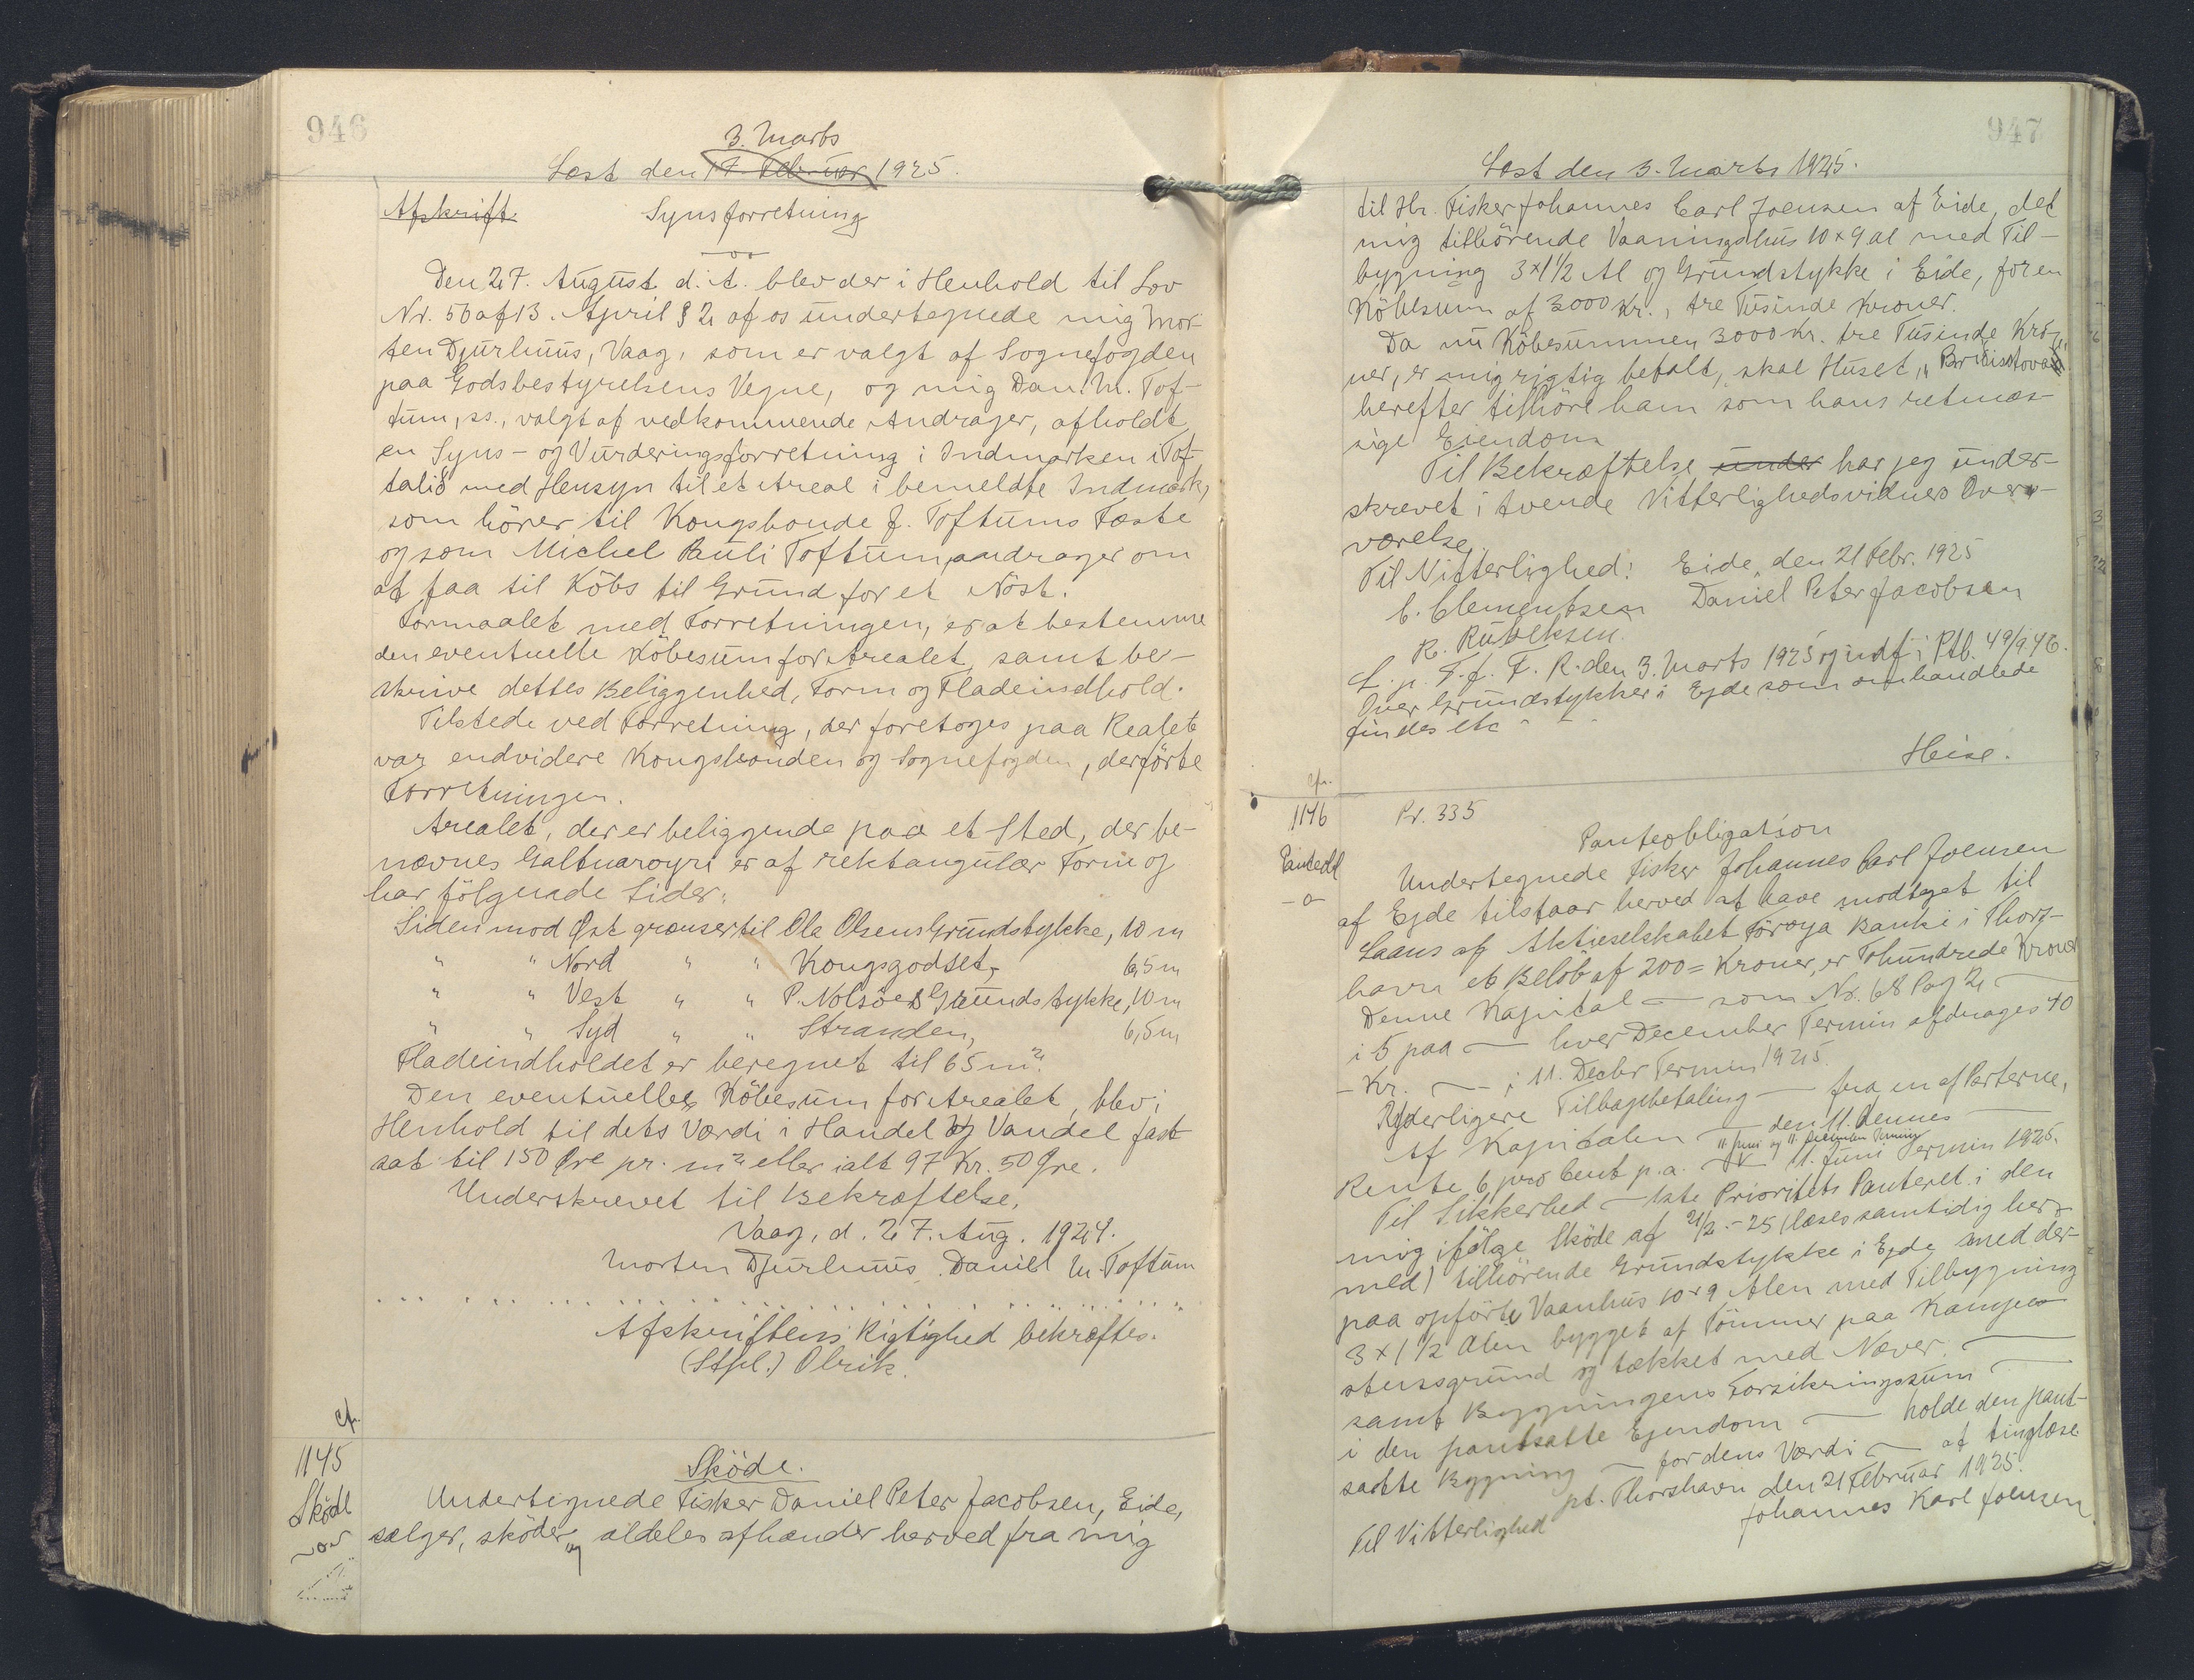 946
3. Marts
Læst den 17. Februar 1925.
Afskrift. Synsforretning
Den 27. August d. A. blev der i Henhold til Lov
Nr. 56 af 13. April § 2 af os undertegnede mig Mor-
ten Djurhuus, Vaag, som er valgt af Sognefogden
paa Godsbestyrelsens Vegne, og mig Dan. M. Tof-
tum, ss., valgt af vedkommende Andrager, afholdt
en Syns- og Vurderingsforretning i Indmarken i Tof-
talið med Hensyn til et Areal i bemeldte Indmark,
som hörer til Kongsbonde J. Toftums Fæste
og som Michel Pauli Toftum andrager om
at faa til Köbs til Grund for et Nöst.
Formaalet med Forretningen, er at bestemme
den eventuelle Köbesum for Arealet, samt be-
skrive dettes Beliggenhed, Form og Fladeindhold.
Tilstede ved Forretning, der foretoges paa Realet
var endvidere Kongsbonden og Sognefogden, der förte
Forretningen.
Arealet, der er beliggende paa et Sted, der be-
nævnes Galtnaroyri er af rektangulær Form og
har fölgende Sider:
Siden mod Øst grænser til Ole Olsens Grundstykke, 10 m
" " Nord " " Kongsgodset, 6,5 m
" " Vest " " P. Nolsöes Grundstykke, 10 m
" " Syd " " Stranden, 6,5 m
Fladeindholdet er beregnet til 65 m².
Den eventuelle Köbesum for Arealet, blev i
Henhold til dets Værdi i Handel og Vandel fast-
sat til 150 Øre pr. m² eller ialt 97 Kr. 50 Øre.
Underskrevet til Bekræftelse.
Vaag, d. 27. Aug. 1924.
Morten Djurhuus. Daniel M. Toftum
Afskriftens Rigtighed bekræftes.
(Stpl.) Olrik.
cfr.
1145
Sköde
Sköde.
Undertegnede Fisker Daniel Peter Jacobsen, Eide,
sælger, sköder og aldeles afhænder herved fra mig
947
Læst den 3. Marts 1925.
til Hr. Fisker Johannes Carl Joensen af Eide, det
mig tilhörende Vaaningshus 10 x 9 al med Til-
bygning 3 x 1 1/2 Al og Grundstykke i Eide, for en
Köbesum af 3000 Kr., tre Tusinde Kroner.
Da nu Köbesummen 3000 Kr. tre Tusinde Kro-
ner, er mig rigtig betalt, skal Huset,
herefter tilhöre ham som hans retmæs-
sige Eiendom
Til Bekræftelse under har jeg under-
skrevet i tvende Vitterlighedsvidners Over-
værelse.
Til Vitterlighed: Eide, den 21 Febr. 1925
C. Clementsen Daniel Peter Jacobsen
R. Rubeksen.
L. p. T. f. F. R. den 3. Marts 1925 og indf i Ptb. 49/946.
Over Grundstykker i Ejde som omhandlede
findes etc - - -
Heise.
cfr.
1146 Pr. 335
Panteobl
-o-
Panteobligation
Undertegnede Fisker Johannes Carl Joensen
af Ejde tilstaar herved at have modtaget til
Laans af Aktieselskabet Föroya Banki i Thors-
havn et Belöb af 200 = Kroner, er Tohundrede Kroner
Denne Kapital — som Nr. 68 Pag 2 —
i 5 paa — hver December Termin afdrages 40
- Kr. — i 11. Decbr Termin 1925.
Yderligere Tilbagebetaling — fra en af Parterne,
Af Kapitalen — den 11. dennes —
11. Juni og 11. December Termin
Rente 6 pro Cent p. a. — 11. Juni Termin 1925.
Til Sikkerhed — 1ste Prioritets Panteret i den
mig ifölge Sköde af 21/2 - 25 (læses samtidig her-
med) tilhörende Grundstykke i Ejde med der-
paa opförte Vaanhus 10 x 9 Alen med Tilbygning
3 x 1 1/2 Alen bygget af Tömmer paa Kampe-
stensgrund og tækket med Næver. —
samt Bygningens Forsikringssum —
i den pantsatte Ejendom — holde den pant-
satte Bygning — for dens Værdi — at tinglæse
pt. Thorshavn den 21 Februar 1925.
Til Vitterlighed Johannes Karl Joensen